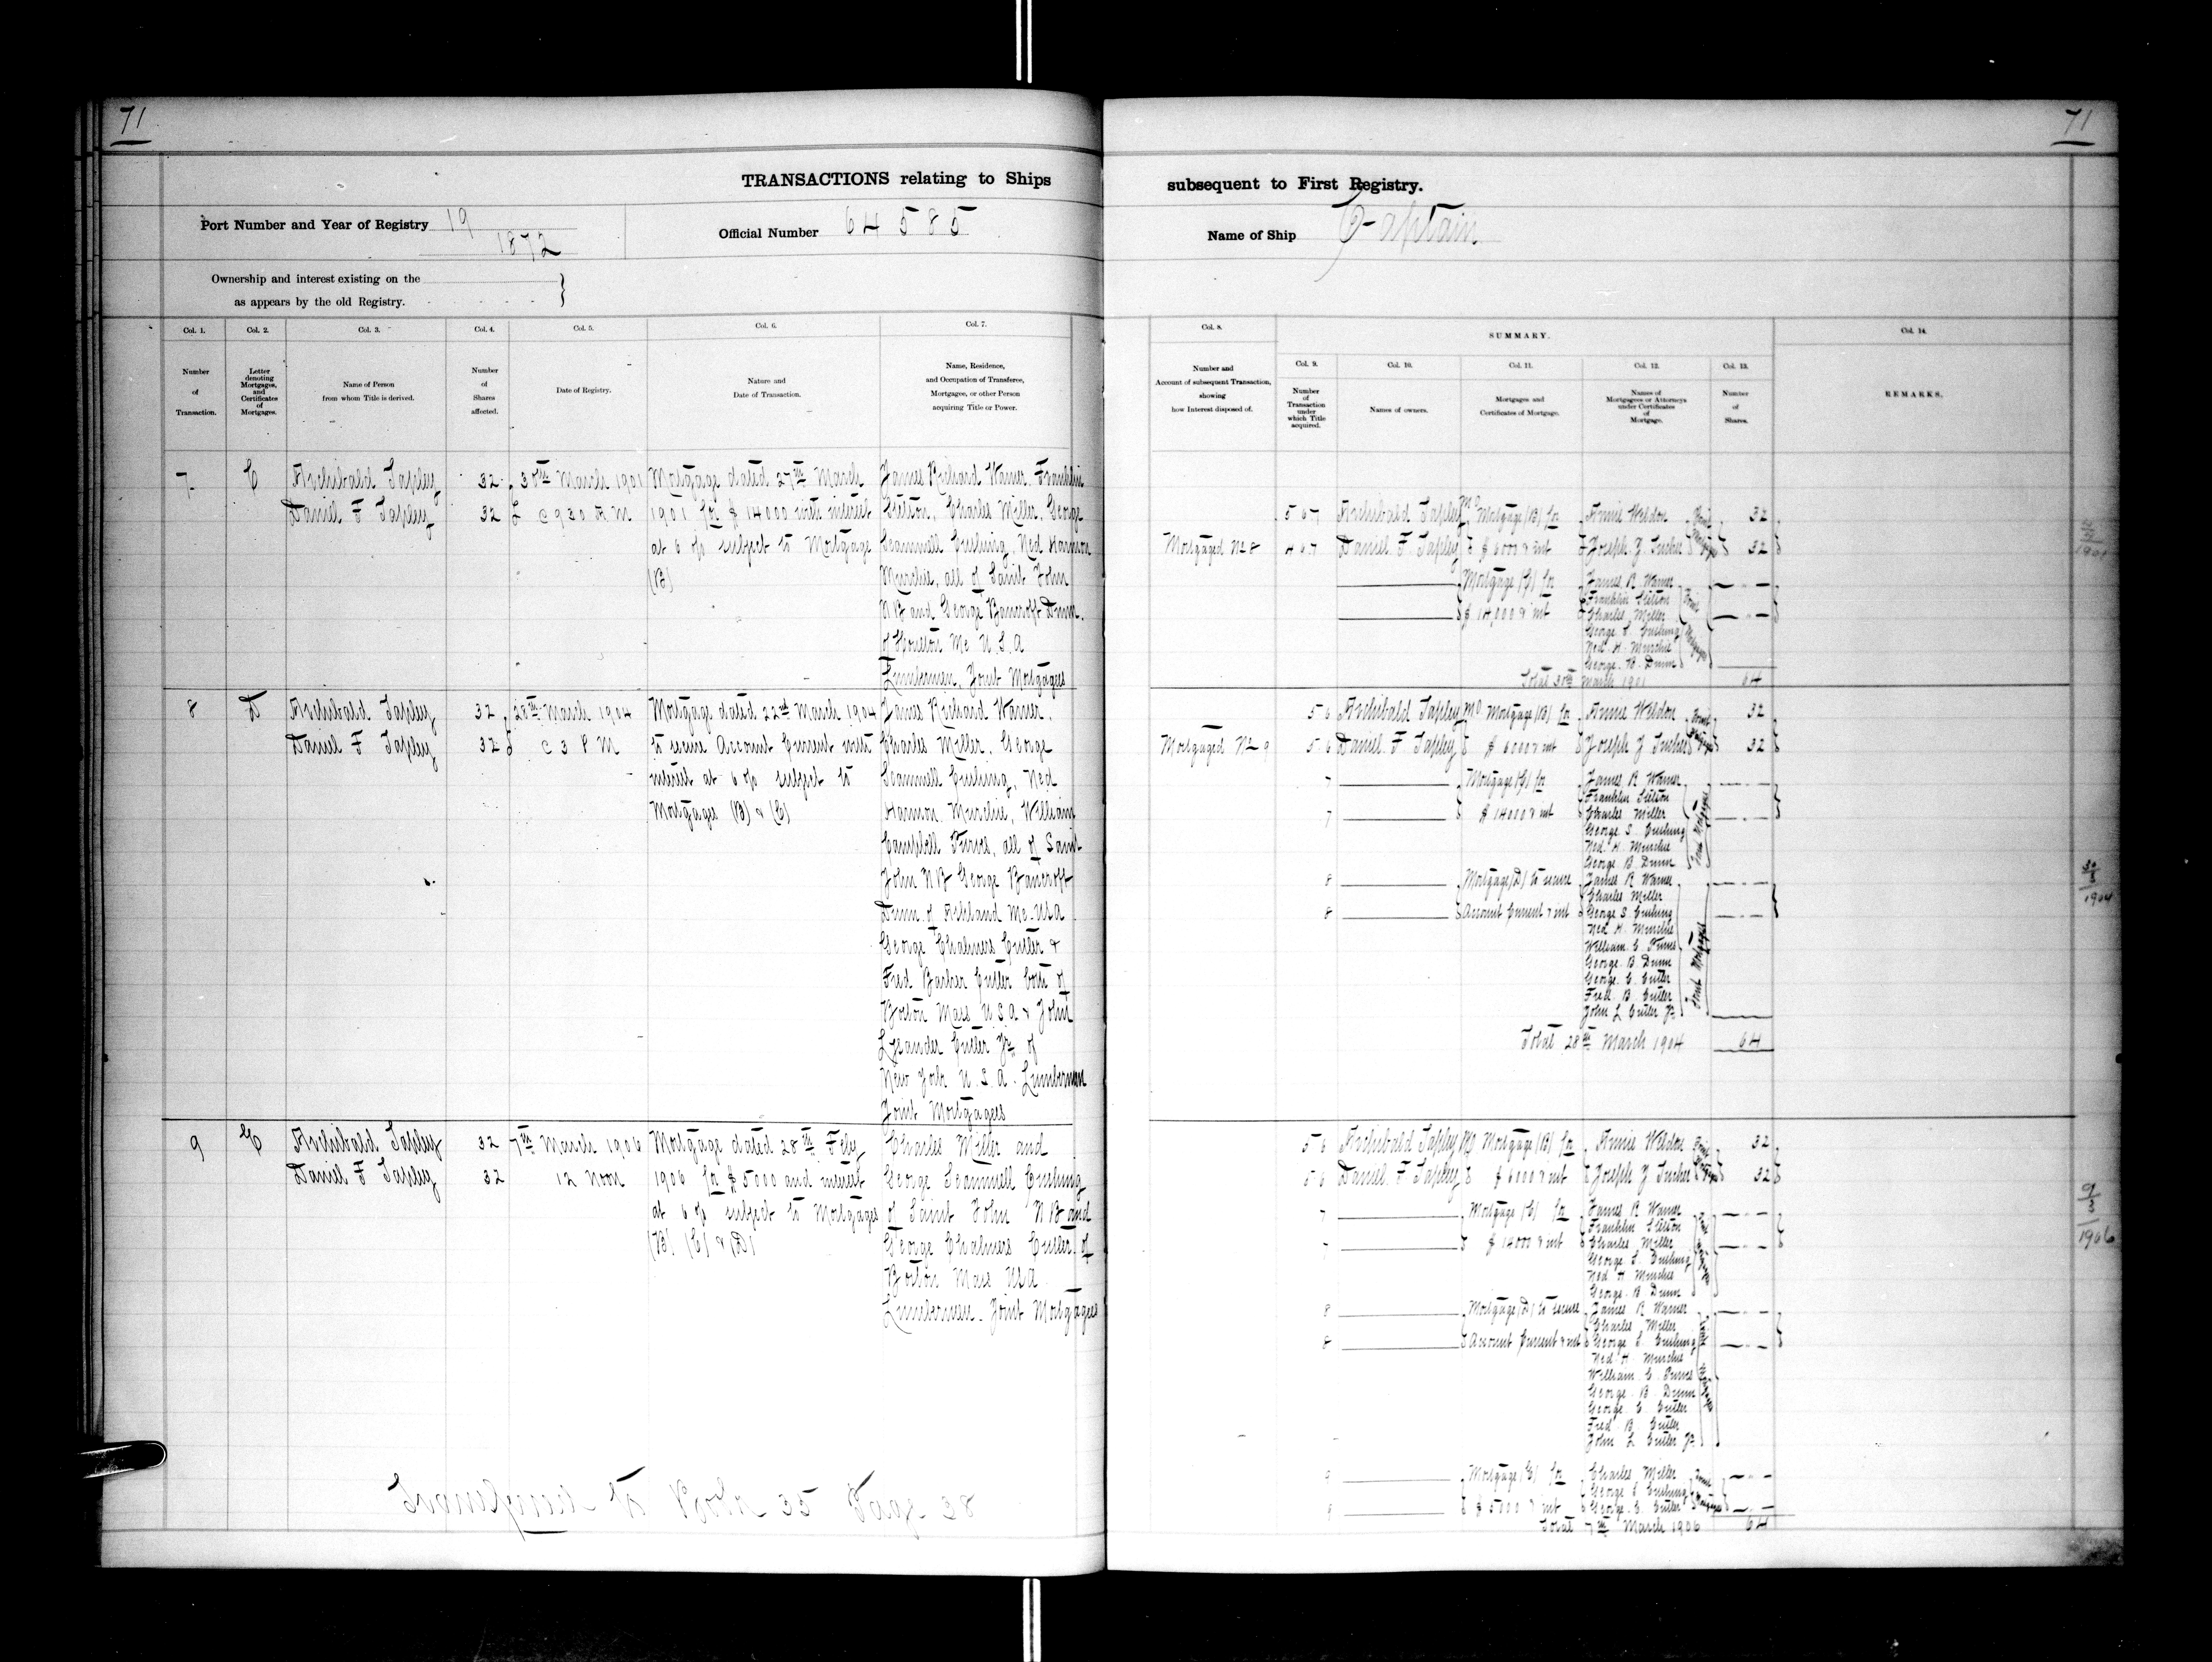 71
71
TRANSACTIONS relating to Ships
subsequent to First Registry.
Port Number and Year of Registry 19
1872
Official Number 64585
Name of Ship Captain
Ownership and interest existing on the
as appears by the old Registry.
Col. 1. Col. 2. Col. 3. Col. 4. Col. 5. Col. 6. Col. 7.
Number of Transaction.
Letter denoting Mortgages, and Certificates of Mortgages.
Name of Person from whom Title is derived.
Number of Shares affected.
Date of Registry.
Nature and Date of Transaction.
Name, Residence, and Occupation of Transferee, Mortgagee, or other Person acquiring Title or Power.
Col. 8.
Number and Account of subsequent Transaction, showing how Interest disposed of.
SUMMARY.
Col. 9. Col. 10. Col. 11. Col. 12. Col. 13.
Number of Transaction under which Title acquired.
Names of owners.
Mortgages and Certificates of Mortgage.
Names of Mortgagees or Attorneys under Certificates of Mortgage.
Number of Shares.
Col. 14.
REMARKS.
7 C Archibald Tapley 32 30th March 1901 Mortgage dated 27th March James Richard Warner, Franklin
Daniel F Tapley 32 @ 930 A M 1901 for $ 14000 with interest Stetson, Charles Miller, George
at 6 % subject to Mortgage Scammell Cushing, Ned Harmon
(B) Murchie, all of Saint John
N B and George Bancroft Dunn
of Houlton Me U.S.A
Lumbermen, Joint Mortgagees
8 D Archibald Tapley 32 28th March 1904 Mortgage dated 22nd March 1904 James Richard Warner,
Daniel F Tapley 32 @ 3 P M to secure Account Current with Charles Miller, George
interest at 6 % subject to Scammell Cushing, Ned
Mortgages (B) & (C) Harmon Murchie, William
Campbell Purves, all of Saint
John N B George Bancroft
Dunn of Ashland Me. USA
George Chalmers Cutler &
Fred Barker Cutler both of
Boston Mass U S A & John
Lysander Cutler Jr. of
New York U.S.A. Lumbermen
Joint Mortgagees
9 E Archibald Tapley 32 7th March 1906 Mortgage dated 28th Feby Charles Miller and
Daniel F Tapley 32 12 Noon 1906 for $ 5000 and interest George Scammell Cushing
at 6 % subject to Mortgages of Saint John N B and
(B) (C) & (D) George Chalmers Cutler of
Boston Mass USA
Lumbermen. Joint Mortgagees
Book 35 Page 38
5 6 7 Archibald Tapley Mo Mortgage (B) for Annie Weldon Joint 32
Mortgaged No 8 4 6 7 Daniel F. Tapley $ 6000 & int Joseph Z Tucker Mortgagees 32
Mortgage (C) for James R Warner
Franklin Stetson
$ 14,000 & int Charles Miller
George S Cushing
Ned. H. Murchie
George B. Dunn
Joint Mortgagees
Total 30th March 1901 64
5 6 Archibald Tapley Mo Mortgage (B) for Annie Weldon Joint 32
Mortgaged No 9 5 6 Daniel F Tapley $ 6000 & int Joseph Z Tucker Mortgagees 32
7 Mortgage (C) for James R Warner
Franklin Stetson
7 $ 14000 & int Charles Miller
George S. Cushing
Ned. H. Murchie
George B. Dunn
Joint Mortgagees
8 Mortgage (D) to secure James R Warner
Charles Miller
8 Account Current & int George S. Cushing
Ned H. Murchie
William C Purves
George B Dunn
George C Cutler
Fred. B. Cutler
John L Cutler Jr
Joint Mortgagees
Total 28th March 1904 64
30/3
1904
5 6 Archibald Tapley Mo. Mortgage (B) for Annie Weldon Joint 32
5 6 Daniel F. Tapley $ 6000 & int Joseph Z Tucker Mortgagees 32
7 Mortgage (C) for James R Warner
Franklin Stetson
7 $ 14000 & int Charles Miller
George S. Cushing
Ned H Murchie
George B Dunn
9/3
1906
8 Mortgage (D) to secure James R Warner
Charles Miller
8 Account Current & int George S. Cushing
Ned H. Murchie
William C. Purves
George B. Dunn
George C. Cutler
Fred B. Cutler
John L Cutler Jr
9 Mortgage (E) for Charles Miller
George S Cushing
$ 5000 & int George C. Cutler
Total 7th March 1906 64